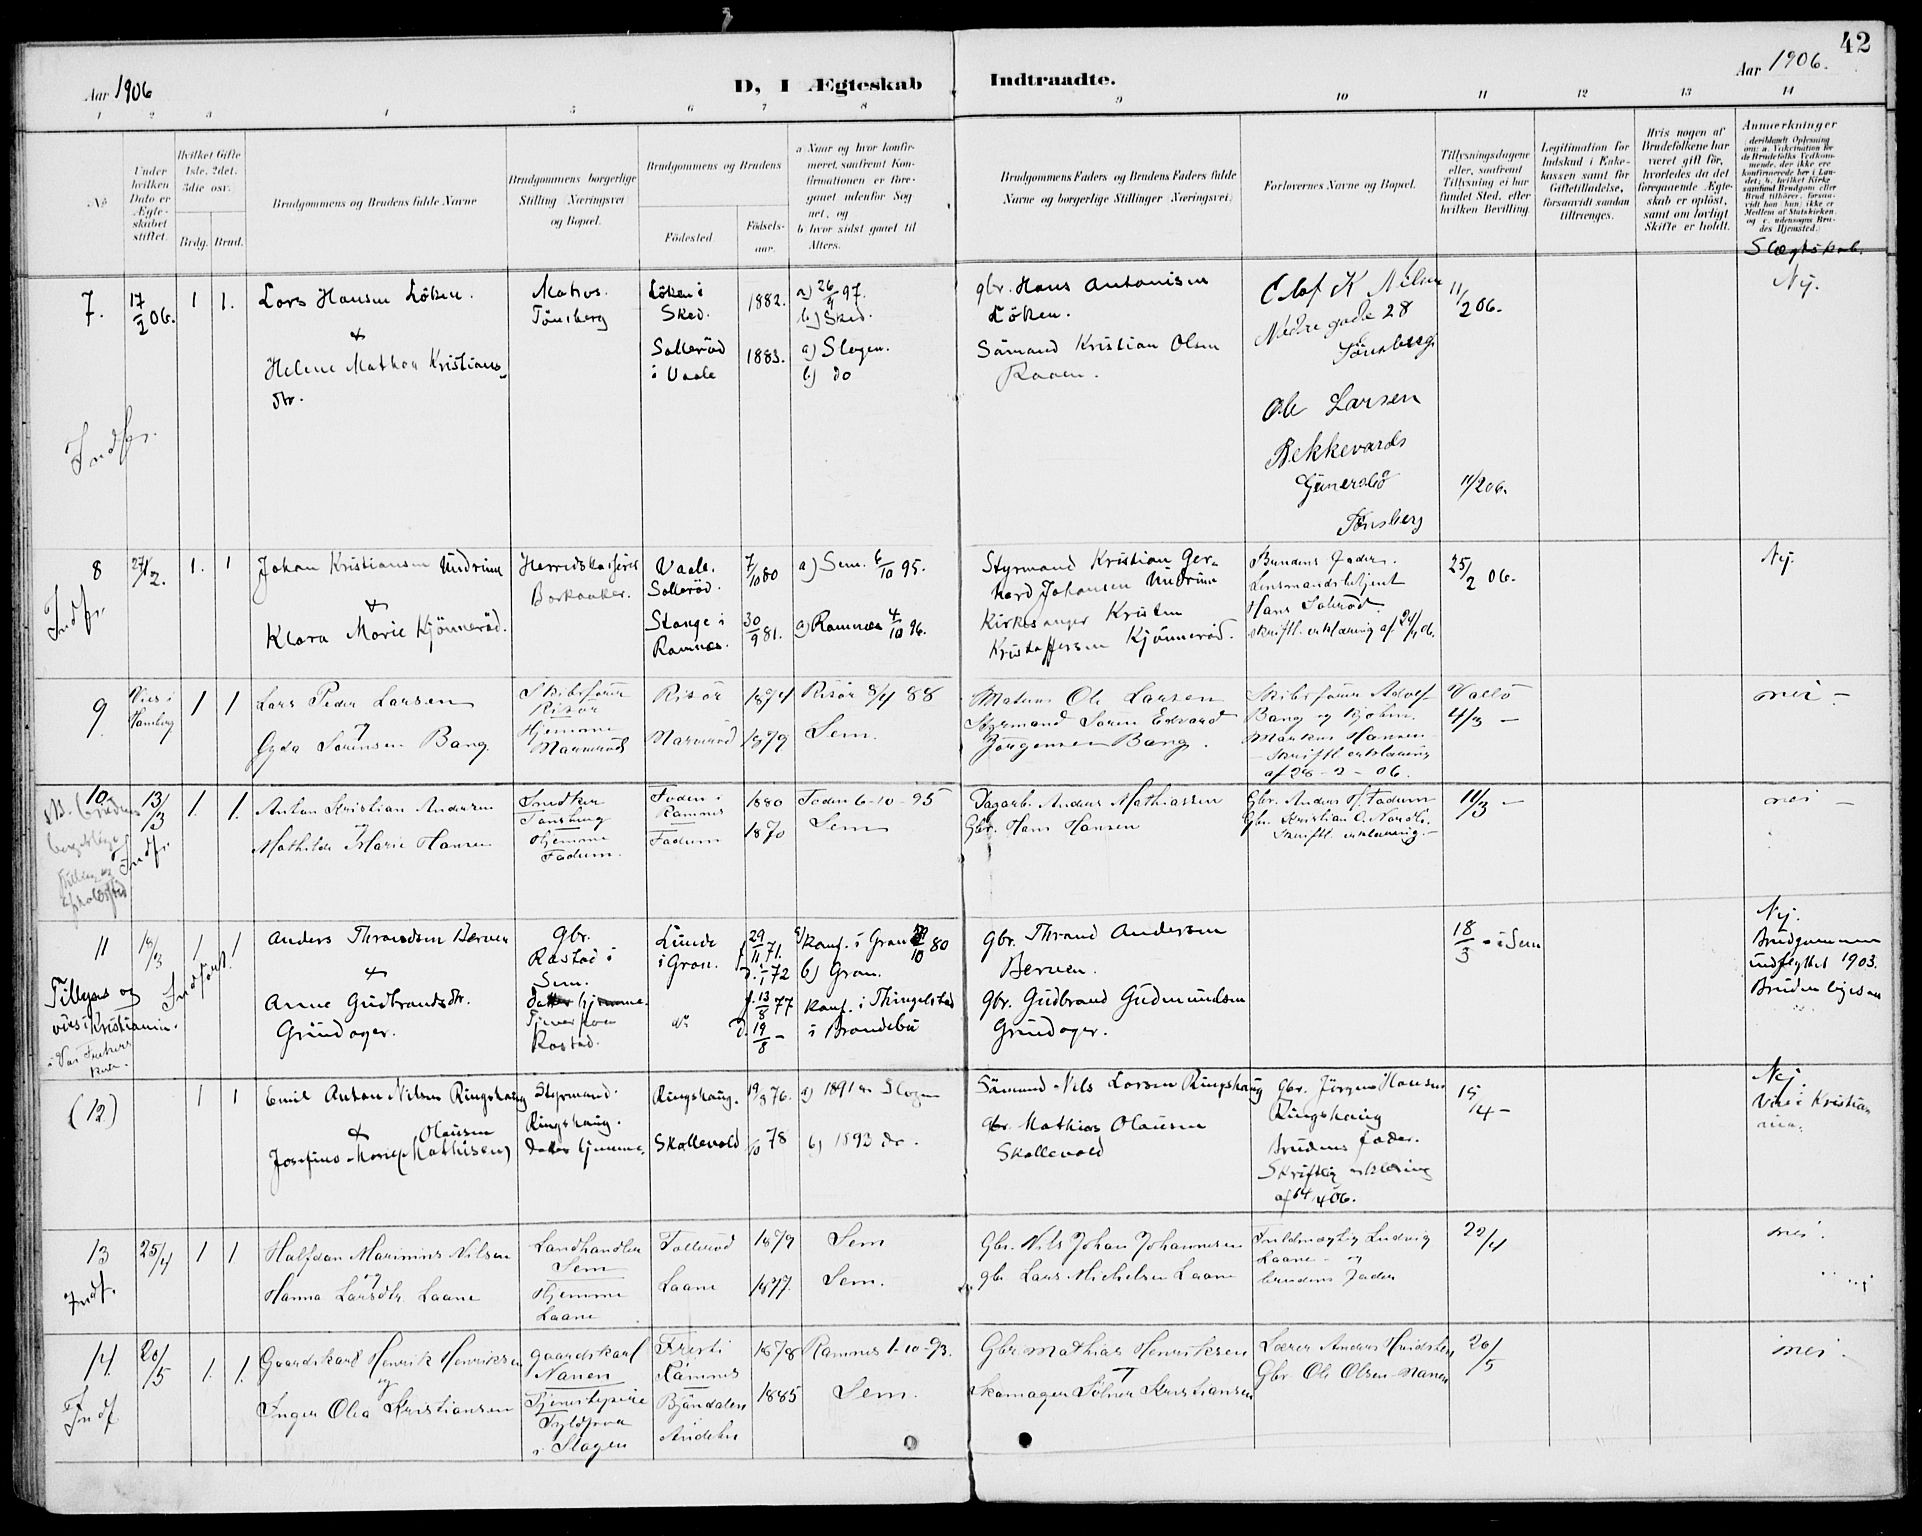 42
Aar 1906
D, I Ægteskab
Indtraadte.
Aar 1906.
1 2 3 4 5 6 7 8 9 10 11 12 13 14
No
Under hvilken Dato er Ægteskabet stiftet.
Hvilket Gifte 1ste, 2det, 3die osv.
Brdg. Brud.
Brudgommens og Brudens fulde Navne
Brudgommens borgerlige Stilling (Næringsvei) og Bopæl.
Brudgommens og Brudens
Fødested.
Fødselsaar.
a Naar og hvor konfirmeret, saafremt Konfirmationen er foregaaet udenfor Sognet, og
b hvor sidst gaaet til Alters.
Brudgommens Faders og Brudens Faders fulde Navne og borgerlige Stillinger (Næringsvei)
Forlovernes Navne og Bopæl.
Tillysningsdagene eller, saafremt Tillysning ei har fundet Sted, efter hvilken Bevilling.
Legitimation for Indskud i Enkekassen samt for Giftetilladelse, forsaavidt saadan tiltrænges.
Hvis nogen af Brudefolkene har været gift før, hvorledes da det foregaaende Ægteskab er opløst, samt om lovligt Skifte er holdt.
Anmerkninger
Slægtskab.
7. 17/2 06. 1 1. Lars Hansen Löken.
&
Helene Mathea Kristiansdtr.
Matros.
Tönsberg
Löken i Sked. 1882. a) 26/9 97.
b) Sked.
Solleröd i Vaale 1883. a) Slagen.
b) do
gbr. Hans Antonisen Löken.
Sömand Kristian Olsen Raaen.
Olaf K Nilsen
Nedre gade 28
Tönsberg
11/2 06.
Nej.
Ole Larsen
Bekkevards
Tönsberg
11/2 06.
Indfr.
8 27/2. 1. 1 Johan Kristiansen Undrum
&
Klara Marie Kjönneröd.
Herredskasserer
Barkaaker.
Vaale. Solleröd. 7/10 80 a) Sem. 6/10 95.
Stange i Ramnes. 30/9 81. a) Ramnes 4/10 96.
Styrmand Kristian Gerhard Johansen Undrum
Kirkesanger Kristen Kristoffersen Kjönneröd.
Brudens Fader.
Lensmandsbetjent
Hans Solleröd.
skriftl. erklæring af 24/2 06.
25/2 06.
Nej.
Indfr.
9. Vies i Hamburg 1 1 Lars Peder Larsen
og
Gyda Sörensen Bang
Skibsfører
Risör
Hjemme
Narveröd
Risör 1874 Risör 8/4 88
Narveröd 1879 Sem.
Matros Ole Larsen
Styrmand Sören Edvard Jörgensen Bang.
Skibsfører Adolf Bang og Kjøbm. Markus Hansen
Skriftl. erklæring
af 26-2-06.
Vallö
4/3 -
nei -
10 13/3 1. 1. Anton Kristian Andersen
og
Mathilde Marie Hansen
Snedker
Tönsberg
Hjemme
Fadum.
Foden i Ramnes 1880 Foden 6-10-95
Fadum 1870 Sem
Dagarb. Anders Mathiassen
Gbr. Hans Hansen
Gbr. Anders H. Fadum
Gbr. Kristian O. Nordbö.
Skriftl. erklæring -
11/3 -
nei -
NB. Brudens borgerlige Stilling og
Indfr.
11 18/3 1 1 Anders Thrandsen Berven
&
Anne Gudbrandsdtr. Grindager.
Gbr.
Rastad i Sem.
Rastad.
Lunde i Gran. f. 29/11 71. a) Konf. i Gran 80
b) Gran.
do f. 13/8 77 Konf. i Thingelstad
d. 19/8 - i Brandebu
gbr. Thrand Andersen Berven.
gbr. Gudbrand Gudmundsen Grindager.
18/3 - i Sem
Nej.
Brudgommen indflyttet 1903.
Bruden ligesaa
Tillyses og vies i Kristiania.
i Vor Frelsers Kirke.
Indført.
(12) 1 1 Emil Anton Nilsen Ringshaug
&
Josefine Marie Olausen (Mathisen)
Styrmand.
Ringshaug.
datter hjemme.
Ringshaug. 19/8 76. a) 1891 Slagen
Skallevold 78 b) 1893 do.
Sömand Nils Larsen Ringshaug
gbr. Mathias Olausen Skallevold
gbr. Jörgen Hansen Ringshaug
Brudens fader.
Skriftlig erklæring
af 14/4 06.
15/4 -
Nej
Vies i Kristiania.
13 25/4 1 1 Halfdan Marinius Nilsen
og
Hanna Larsdtr. Laane
Landhandler
Sem
Hjemme
Laane
Tolleröd 1879 Sem
Laane 1877. Sem.
Gbr. Nils Johan Johannesen
gbr Lars Michelsen Laane
Fuldmægtig Ludvig Laane - og
brudens Fader
22/4
nei.
Indf.
14. 20/5 1. 1. Gaardskarl Henrik Henriksen
og
Inger Olea Kristiansen
gaardskarl
Nanen
Tjenestepige
i Slagen
Ramnes 1878 Ramnes 1-10-93.
Bjöndalen 1885 Sem.
Andebu
Gbr. Mathias Henriksen
Skomager Sölver Kristiansen
Lærer Anders Hvidsten
Gbr. Ole Olsen Nanen
20/5
nei.
Indf